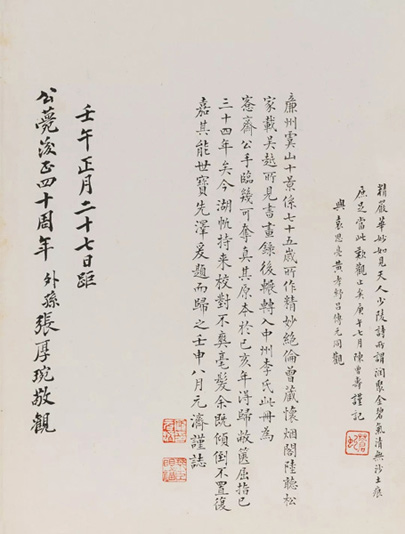 精嚴華妙如見天人少陵詩所謂潤聚金碧氣清無沙土痕
庶足當此歎觀止矣庚午七月陳曾壽謹記
與袁思亮黃孝紓呂傳元同觀
廉州虞山十景係七十五歲所作精妙絕倫曾藏懷烟閣陸聽松
家載吳越所見書畫錄後輾轉入中州李氏此冊為
愙齋公手臨幾可奪真其原本於己亥年得歸敝篋屈指已
三十四年矣今湖帆持來校對不爽毫髮余既傾倒不置復
嘉其能世寶先澤爰題而歸之壬申八月元濟謹誌
壬午正月二十七日距
公薨後正四十周年 外孫張厚琬敬觀